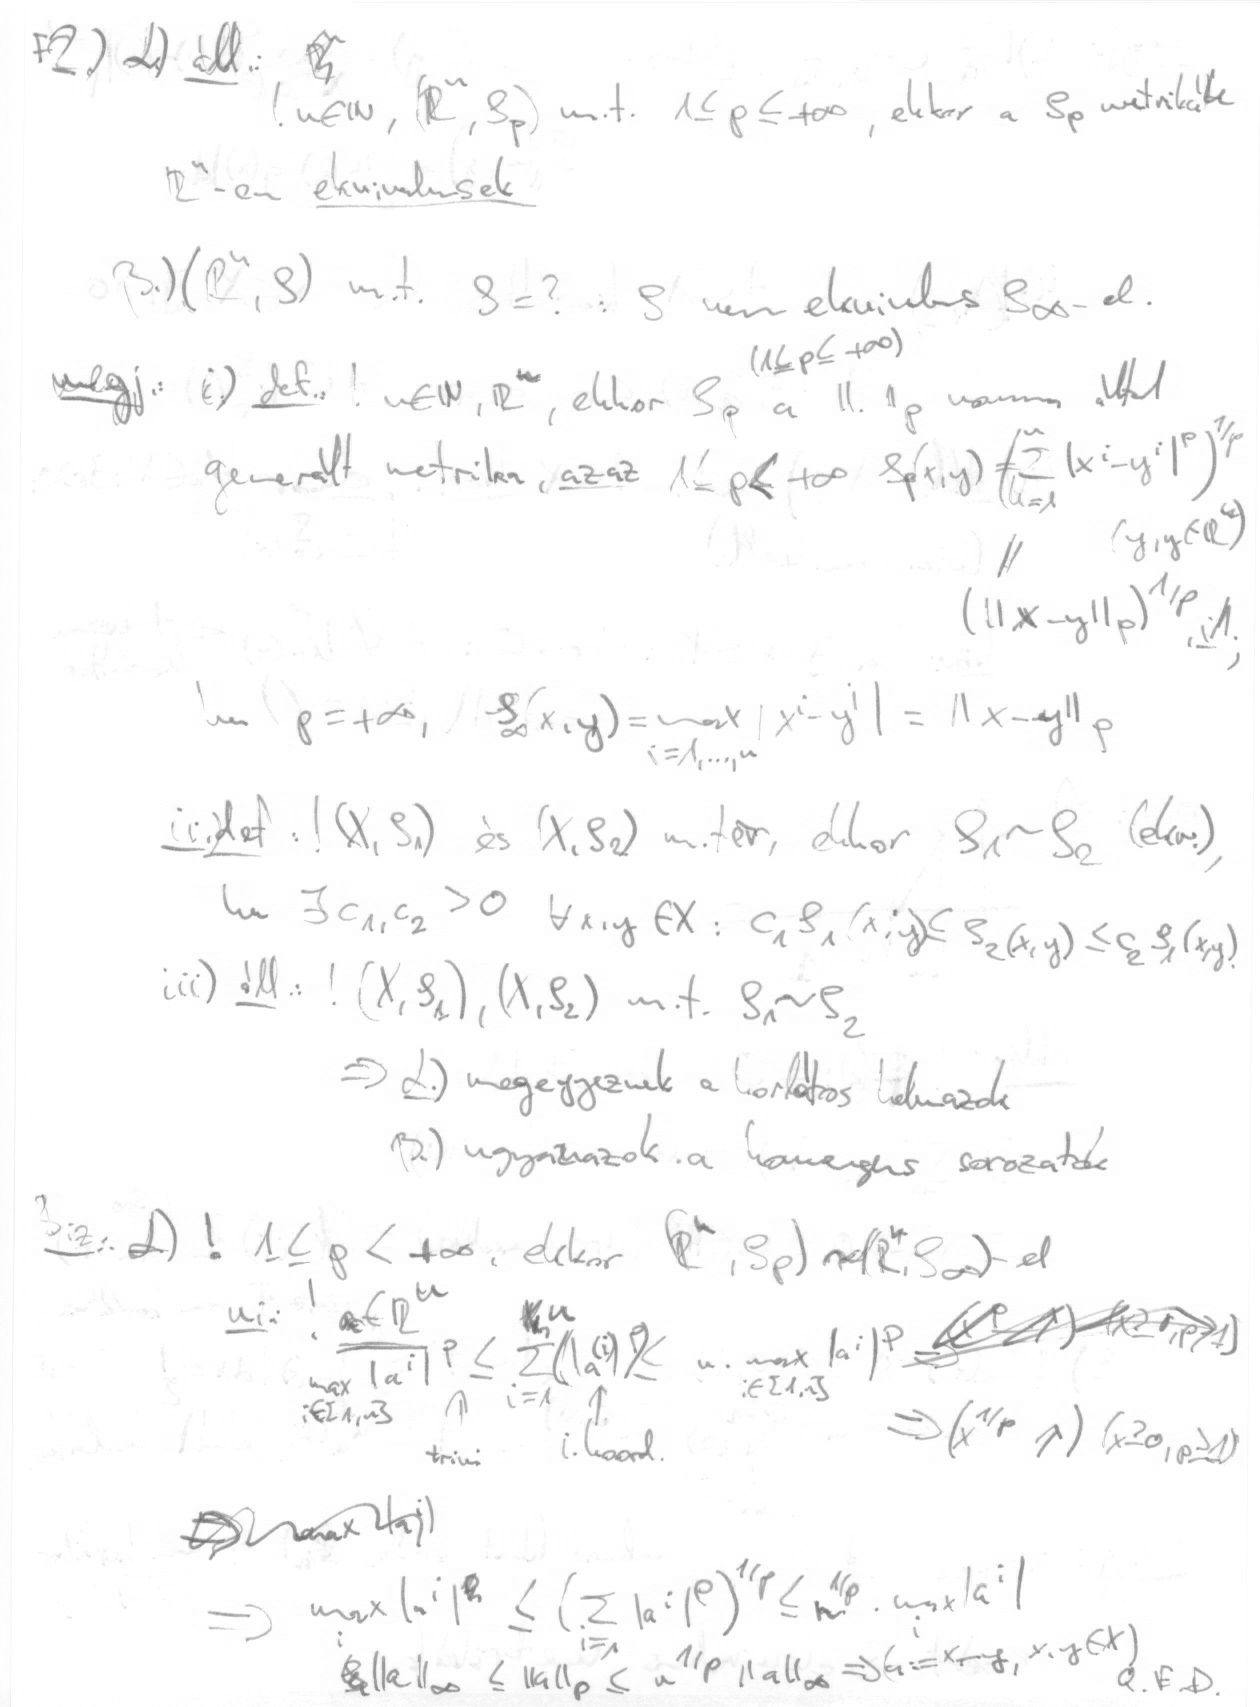 F2.) α) áll.:
! n∈ℕ, (ℝⁿ, ρ_p) m.t. 1≤p≤+∞, ekkor a ρ_p metrikák
ℝⁿ-en ekvivalensek
β.) (ℝⁿ, ρ) m.t. ρ=? : ρ nem ekvivalens ρ_∞-el.
megj.: i.) def.: ! n∈ℕ, ℝⁿ, ekkor ρ_p (1≤p≤+∞) a ‖.‖_p norma által
generált metrika, azaz 1≤p<+∞ ρ_p(x,y) = (∑_{k=1}^n |x^i-y^i|^p)^{1/p}
// (y,y∈ℝⁿ)
(‖x-y‖_p)^{1/p}
ha p=+∞, ρ_∞(x,y) = max_{i=1,...,n} |x^i-y^i| = ‖x-y‖_p
ii.) def.: ! (X,ρ₁) és (X,ρ₂) m.tér, ekkor ρ₁~ρ₂ (ekv.),
ha ∃c₁,c₂>0 ∀x,y∈X: c₁ρ₁(x,y) ≤ ρ₂(x,y) ≤ c₂ρ₁(x,y).
iii) áll.: ! (X,ρ₁), (X,ρ₂) m.t. ρ₁~ρ₂
⇒ α.) megegyeznek a korlátos halmazok
β.) ugyanazok a konvergens sorozatok
Biz.: α) ! 1≤p<+∞, ekkor (ℝⁿ, ρ_p) ~ (ℝⁿ, ρ_∞)-el
ui.: ! a∈ℝⁿ
max_{i∈[1,n]} |a^i|^p ≤ ∑_{i=1}^n (|a^{(i)}|)^p ≤ n. max_{i∈[1,n]} |a^i|^p ⇒
↑ ↑ ⇒ (x^{1/p} ↗) (x≥0, p≥1)
triv. i. koord.
⇒ max_i |a^i| ≤ (∑_{i=1} |a^i|^p)^{1/p} ≤ n^{1/p} . max_i |a^i|
‖a‖_∞ ≤ ‖a‖_p ≤ n^{1/p} ‖a‖_∞ ⇒ (a:=x-y, x,y∈X)
Q.E.D.